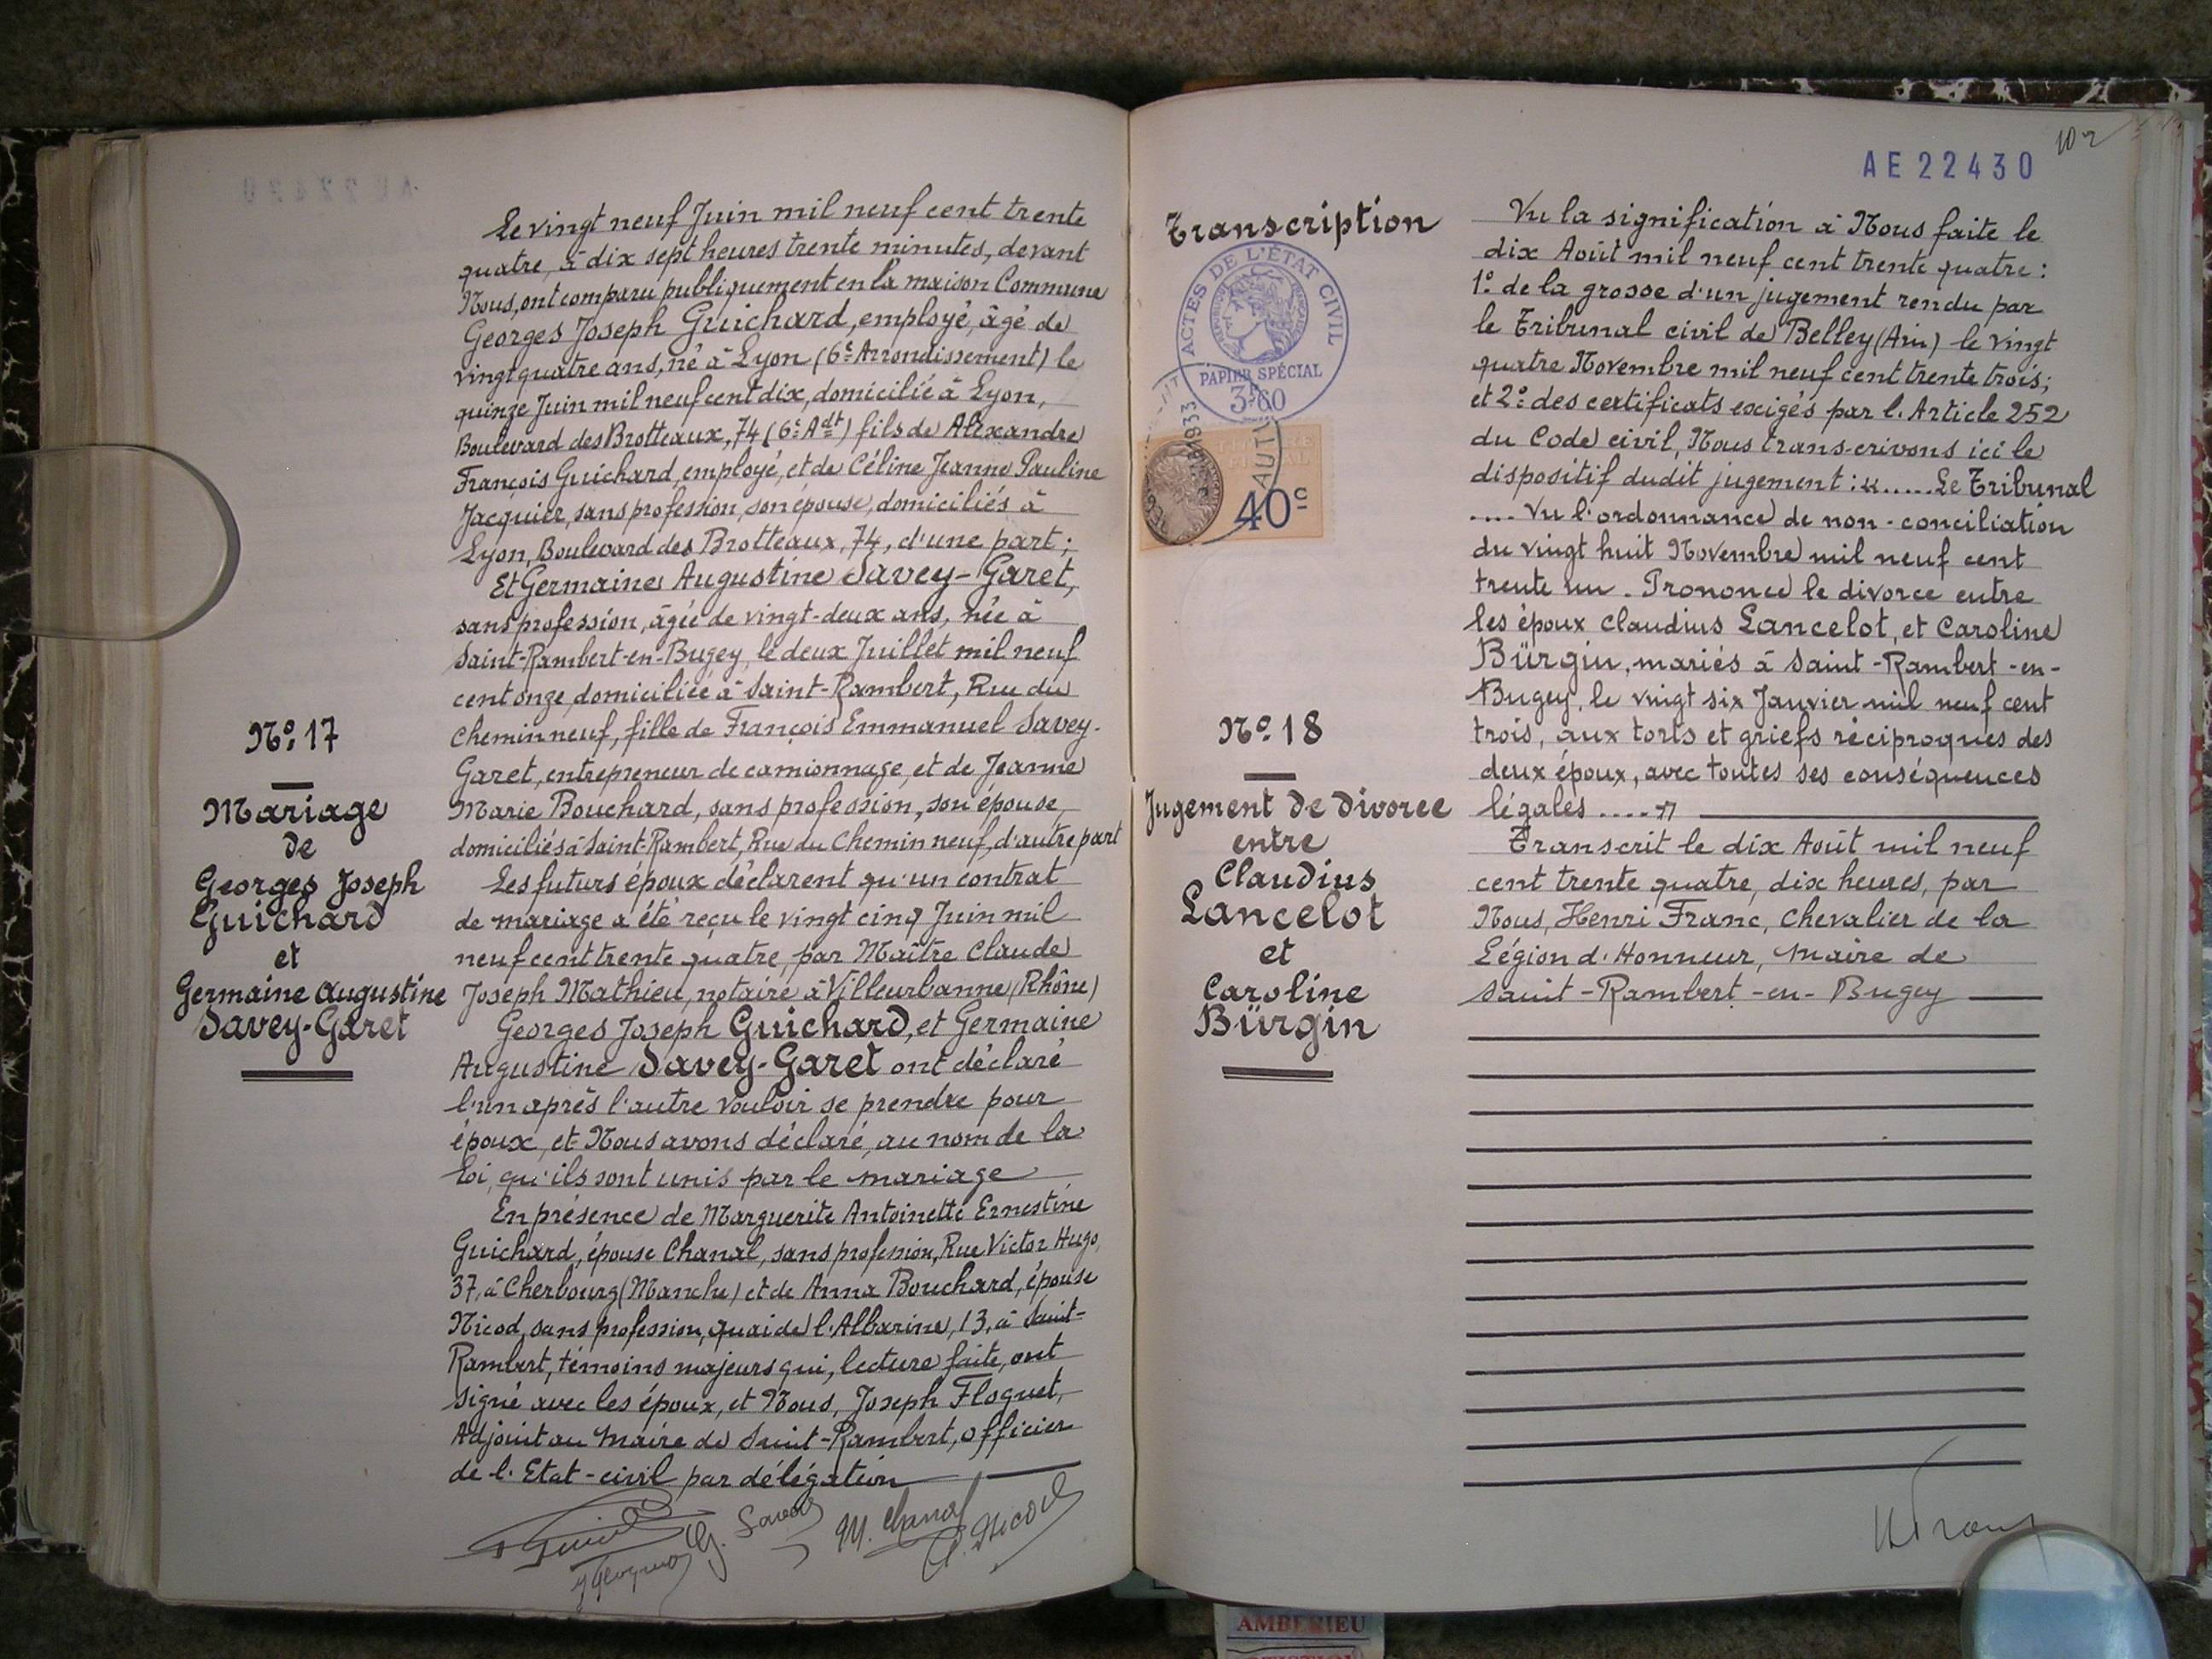 N° 17
Mariage
de
Georges Joseph
Guichard
et
Germaine Augustine
Savey-Garet
Le vingt neuf Juin mil neuf cent trente
quatre, à dix sept heures trente minutes, devant
Nous, ont comparu publiquement en la maison Commune
Georges Joseph Guichard, employé, âgé de
vingt quatre ans, né à Lyon (6e Arrondissement) le
quinze Juin mil neuf cent dix, domicilié à Lyon,
Boulevard des Brotteaux, 74 (6e Adt) fils de Alexandre
François Guichard, employé, et de Céline Jeanne Pauline
Jacquier, sans profession, son épouse, domiciliés à
Lyon, Boulevard des Brotteaux, 74, d'une part;
Et Germaine Augustine Savey-Garet,
sans profession, âgée de vingt-deux ans, née à
Saint-Rambert-en-Bugey, le deux Juillet mil neuf
cent onze, domiciliée à Saint-Rambert, Rue du
Chemin neuf, fille de François Emmanuel Savey-
Garet, entrepreneur de camionnage, et de Jeanne
Marie Bouchard, sans profession, son épouse,
domiciliés à Saint-Rambert, Rue du Chemin neuf, d'autre part
Les futurs époux déclarent qu'un contrat
de mariage a été reçu le vingt cinq Juin mil
neuf cent trente quatre, par Maître Claude
Joseph Mathieu, notaire à Villeurbanne (Rhône)
Georges Joseph Guichard, et Germaine
Augustine Savey-Garet ont déclaré
l'un après l'autre vouloir se prendre pour
époux, et Nous avons déclaré, au nom de la
loi, qu'ils sont unis par le mariage
En présence de Marguerite Antoinette Ernestine
Guichard, épouse Chanal, sans profession, Rue Victor Hugo,
37, à Cherbourg (Manche) et de Anna Bouchard, épouse
Nicod, sans profession, quai de l'Albarine, 13, à Saint-
Rambert, témoins majeurs qui, lecture faite, ont
signé avec les époux, et Nous, Joseph Floquet,
Adjoint au Maire de Saint-Rambert, officier
de l'Etat-civil par délégation
M. Chanal
A. Nicod
102
AE22430
Transcription
ACTES DE L'ÉTAT CIVIL
PAPIER SPÉCIAL
3F60
40c
N° 18
Jugement de divorce
entre
Claudius
Lancelot
et
Caroline
Bürgin
Vu la signification à Nous faite le
dix Août mil neuf cent trente quatre:
1° de la grosse d'un jugement rendu par
le Tribunal civil de Belley (Ain) le vingt
quatre Novembre mil neuf cent trente trois;
et 2° des certificats exigés par l'Article 252
du Code civil, Nous transcrivons ici le
dispositif dudit jugement: «.....Le Tribunal
.... Vu l'ordonnance de non-conciliation
du vingt huit Novembre mil neuf cent
trente un. Prononce le divorce entre
les époux Claudius Lancelot, et Caroline
Bürgin, mariés à Saint-Rambert-en-
Bugey, le vingt six Janvier mil neuf cent
trois, aux torts et griefs réciproques des
deux époux, avec toutes ses conséquences
légales ....»
Transcrit le dix Août mil neuf
cent trente quatre, dix heures, par
Nous, Henri Franc, Chevalier de la
Légion d'Honneur, Maire de
Saint-Rambert-en-Bugey
H Franc
AMBERIEU